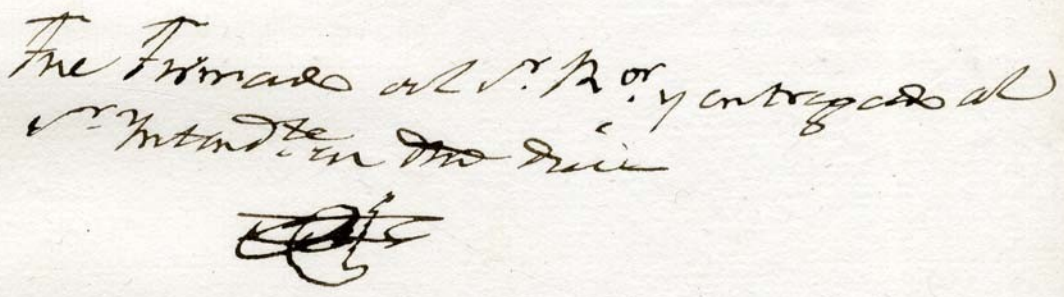 Fue Firmado al Sr. Ror. y entregado al
Sr. Intend.te en dho dia